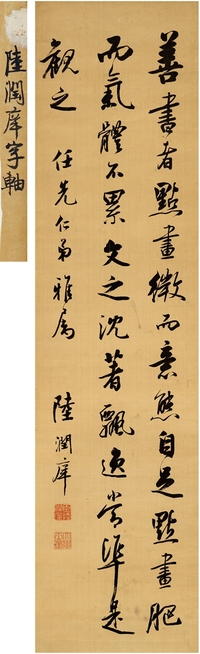 陸潤庠字軸
善書者點畫微而意態自足點畫肥
而氣體不累文之沈著飄逸當準是
觀之
任先仁弟雅屬
陸潤庠